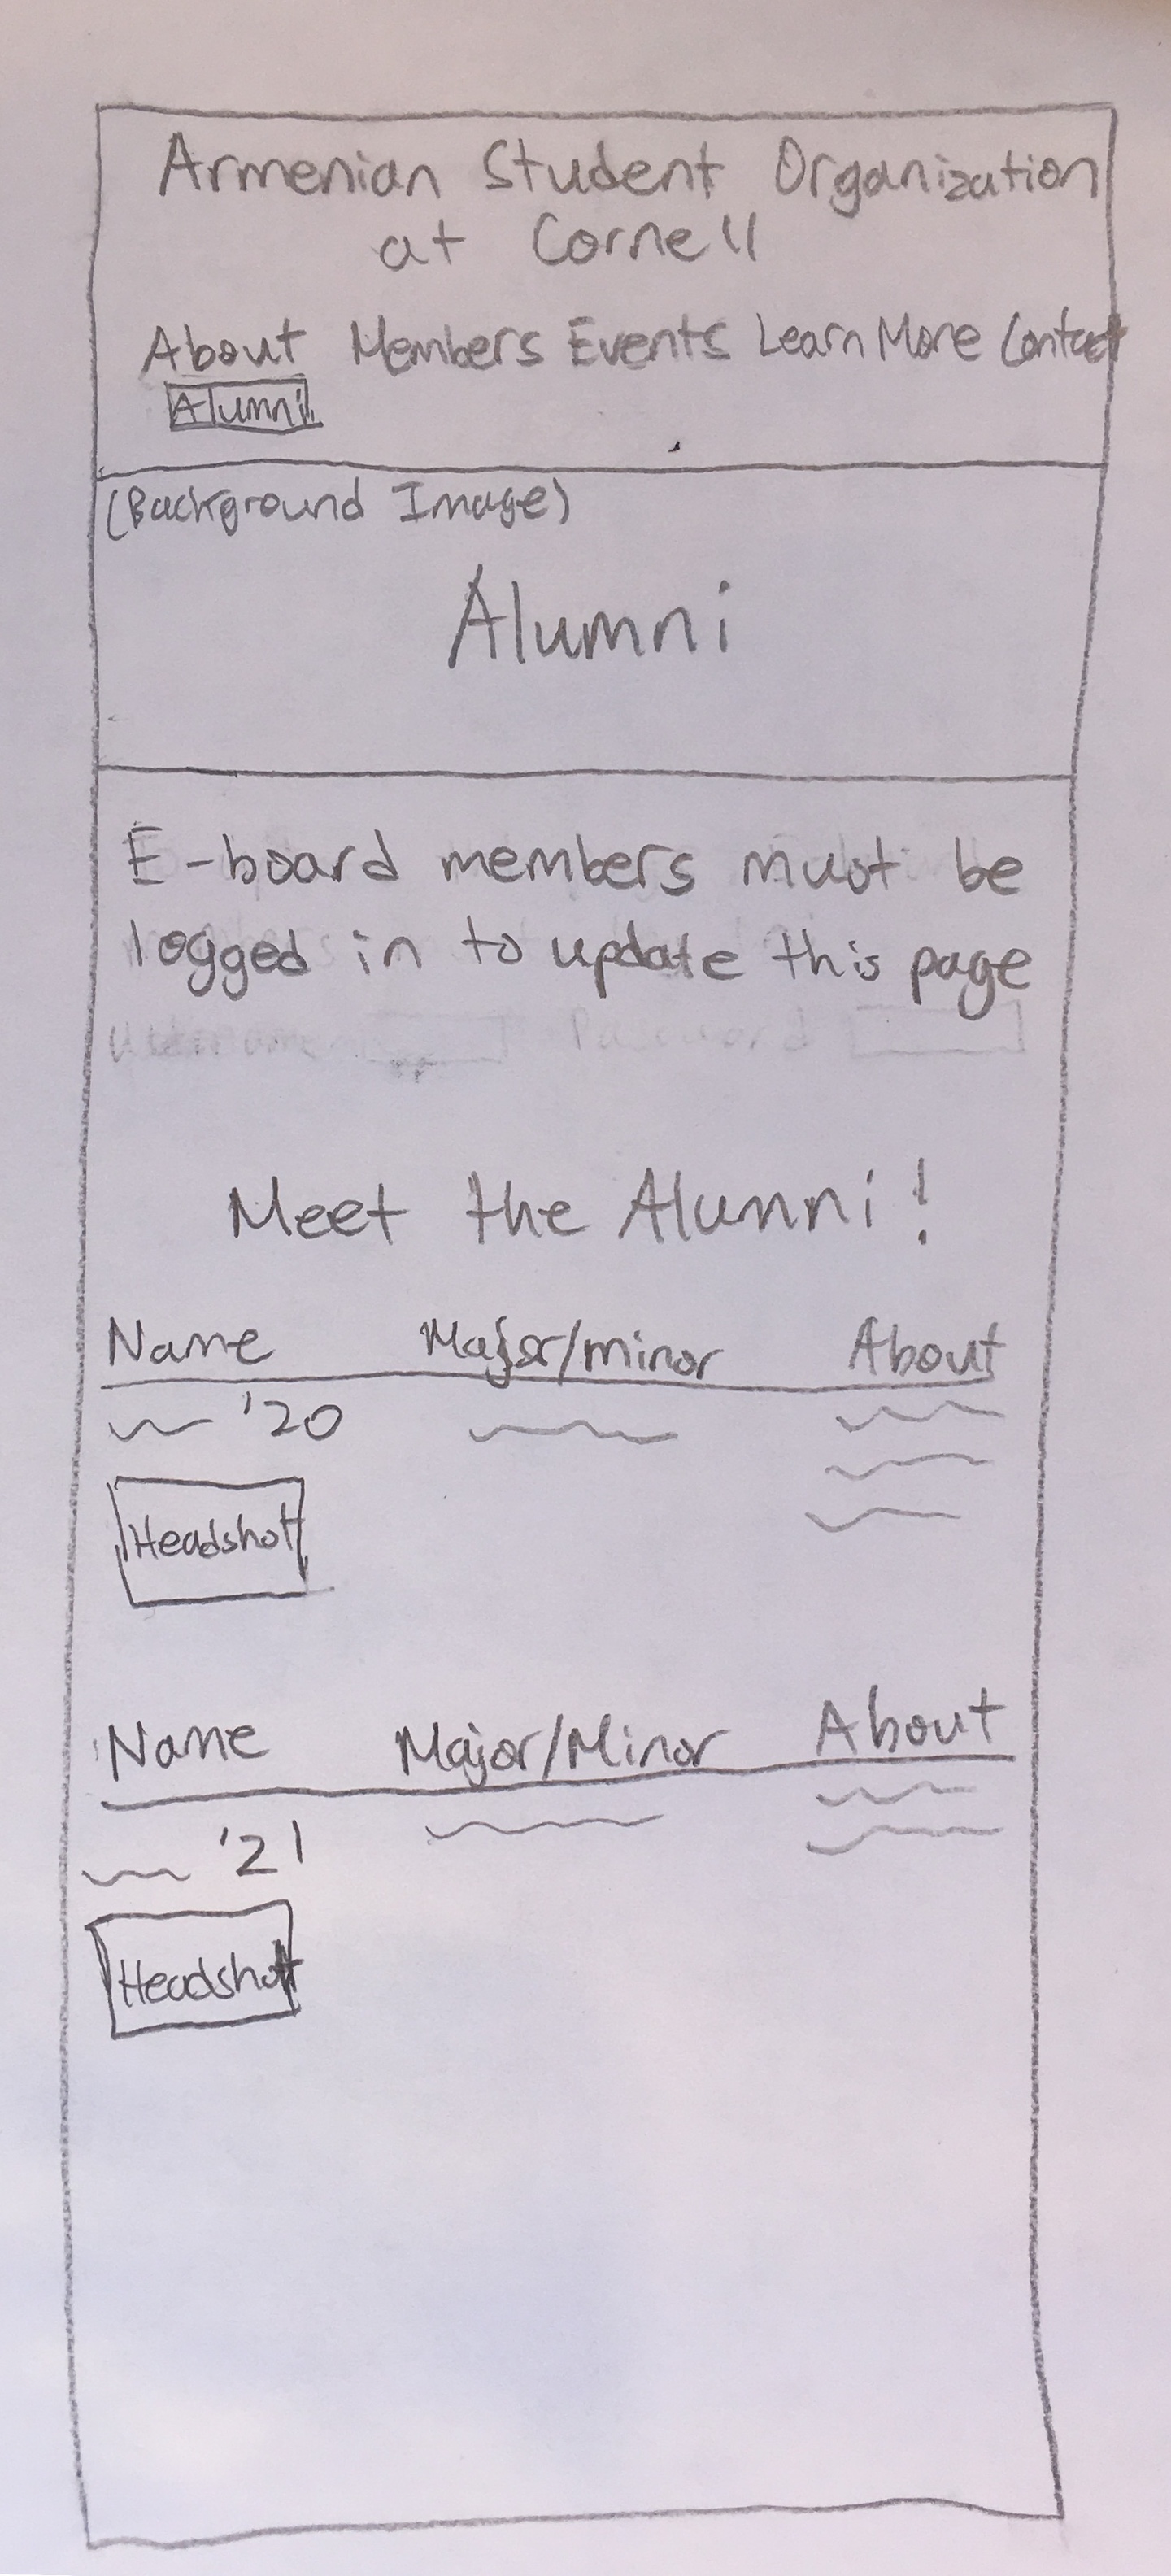 Armenian Student Organization
at Cornell
About Members Events Learn More Contact
Alumni
(Background Image)
Alumni
E-board members must be
logged in to update this page
Username Password
Meet the Alumni!
Name Major/minor About
'20
Headshot
Name Major/Minor About
'21
Headshot